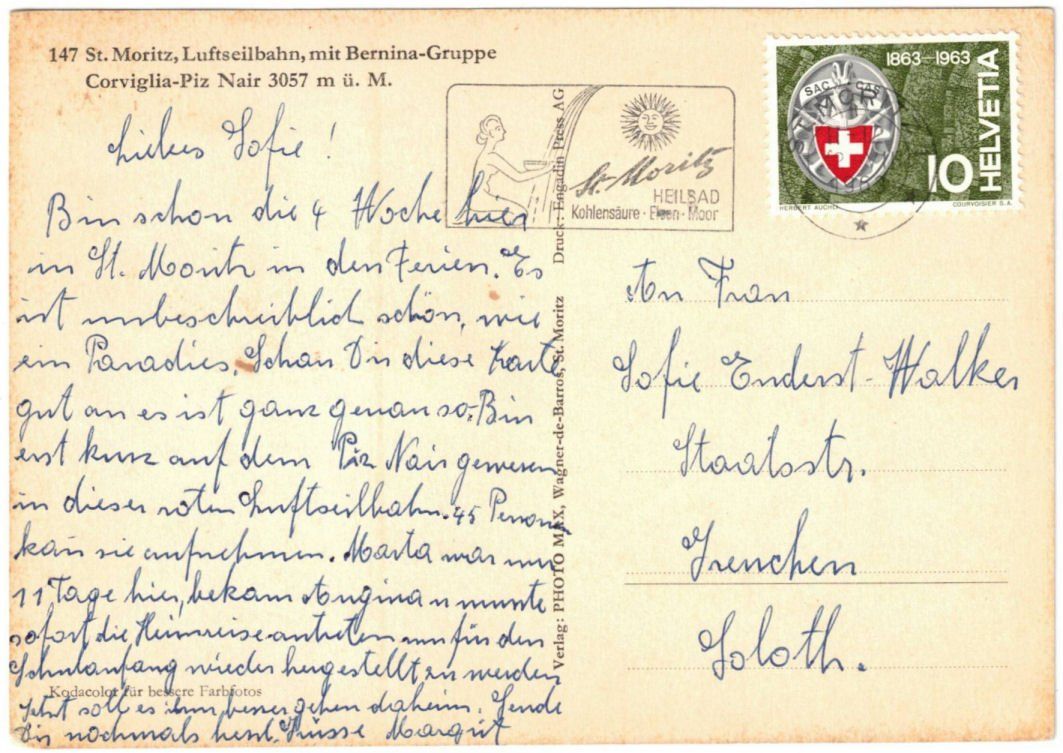 147 St. Moritz, Luftseilbahn, mit Bernina-Gruppe
Corviglia-Piz Nair 3057 m ü. M.
Liebes Sofie!
Bin schon die 4 Woche hier
in St. Moritz in den Ferien. Es
ist unbeschreiblich schön, wie
ein Paradies, Schau Dir diese Karte
gut an es ist ganz genau so. Bin
erst kurz auf dem Piz Nair gewesen
in dieser roten Luftseilbahn. 45 Person
kan sie aufnehmen. Marta war nur
11 Tage hier, bekam Angina u musste
sofort die Heimreise antreten um für den
Schulanfang wieder hergestellt zu werden
Jetzt soll es ihm besser gehen daheim. Sende
Dir nochmals herzl. Küsse Margrit
Kodacolor für bessere Farbfotos
Verlag: PHOTO MAX, Wagner-de-Barros, St. Moritz
Druck: Engadin Press AG
St. Moritz
HEILBAD
Kohlensäure · Eisen · Moor
1863-1963
SAC CAS
HELVETIA
10
HERBERT AUCHLI
COURVOISIER S.A.
An Frau
Sofie Enderst-Walker
Staatsstr.
Grenchen
Soloth.